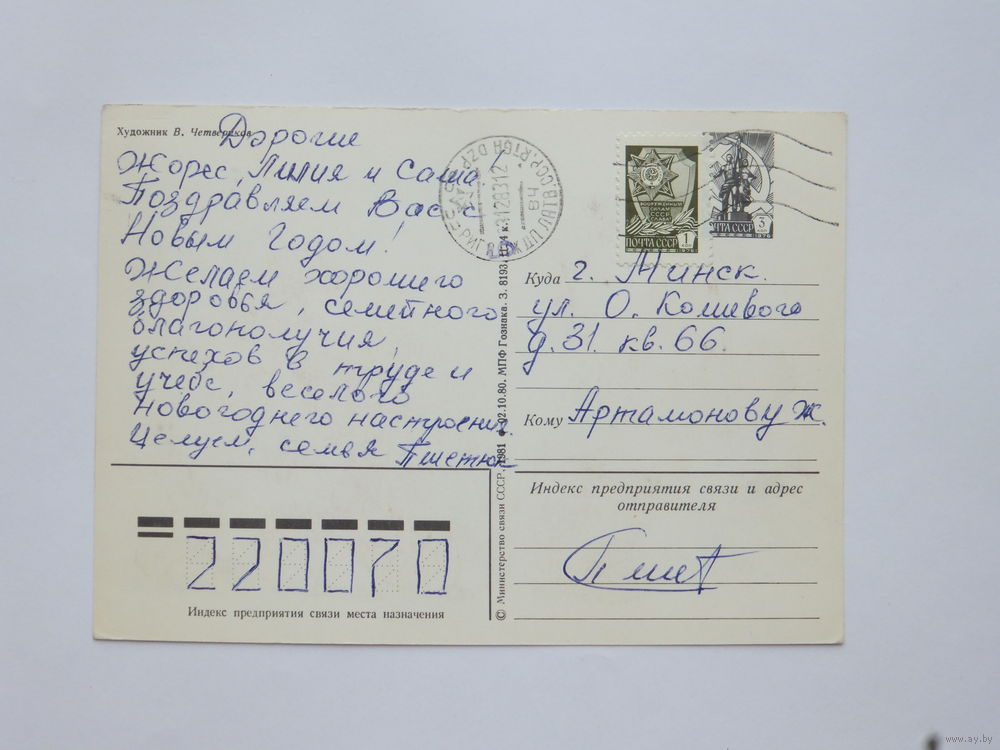 Художник В. Четвериков
Дорогие
Жорес, Лилия и Саша!
Поздравляем Вас с
Новым Годом!
Желаем хорошего
здоровья, семейного
благополучия,
успехов в труде и
учебе, веселого
новогоднего настроения.
Целуем, семья Пшетюк
ВООРУЖЕННЫМ
СИЛАМ
СССР
СЛАВА
ПОЧТА СССР 1
1976
3 КОП
ПОЧТА СССР
1976
Куда г. Минск.
ул. О. Кошевого
д. 31. кв. 66.
Кому Артамонову Ж.
Индекс предприятия связи и адрес
отправителя
Пшет
220070
Индекс предприятия связи места назначения
© Министерство связи СССР. 1981 02.10.80. МПФ Гознака. З. 8193. Ц. 4 к.
www.ay.by